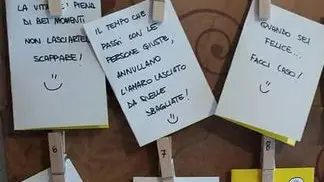 LA VITA È PIENA
DI BEI MOMENTI
NON LASCIARTELI
SCAPPARE!
IL TEMPO CHE
PASSI CON LE
PERSONE GIUSTE
ANNULLANO
L'AMARO LASCIATO
DA QUELLE
SBAGLIATE!
QUANDO SEI
FELICE...
FACCI CASO!
6
7
8